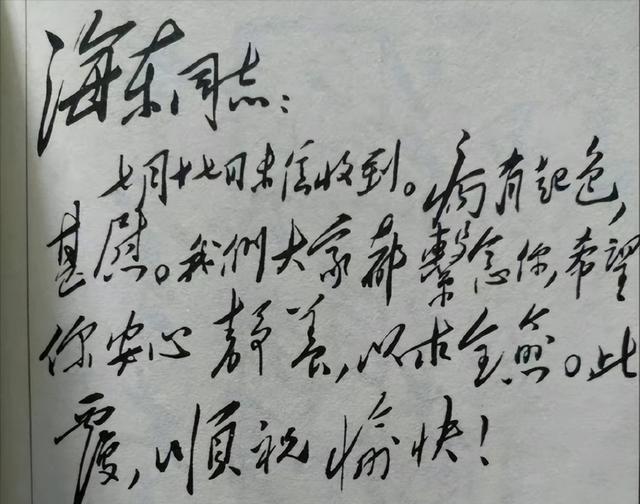 海东同志：
七月十七日来信收到。病有起色，
甚慰。我们大家都繫念你，希望
你安心静养，以求全愈。此
覆，顺祝愉快！